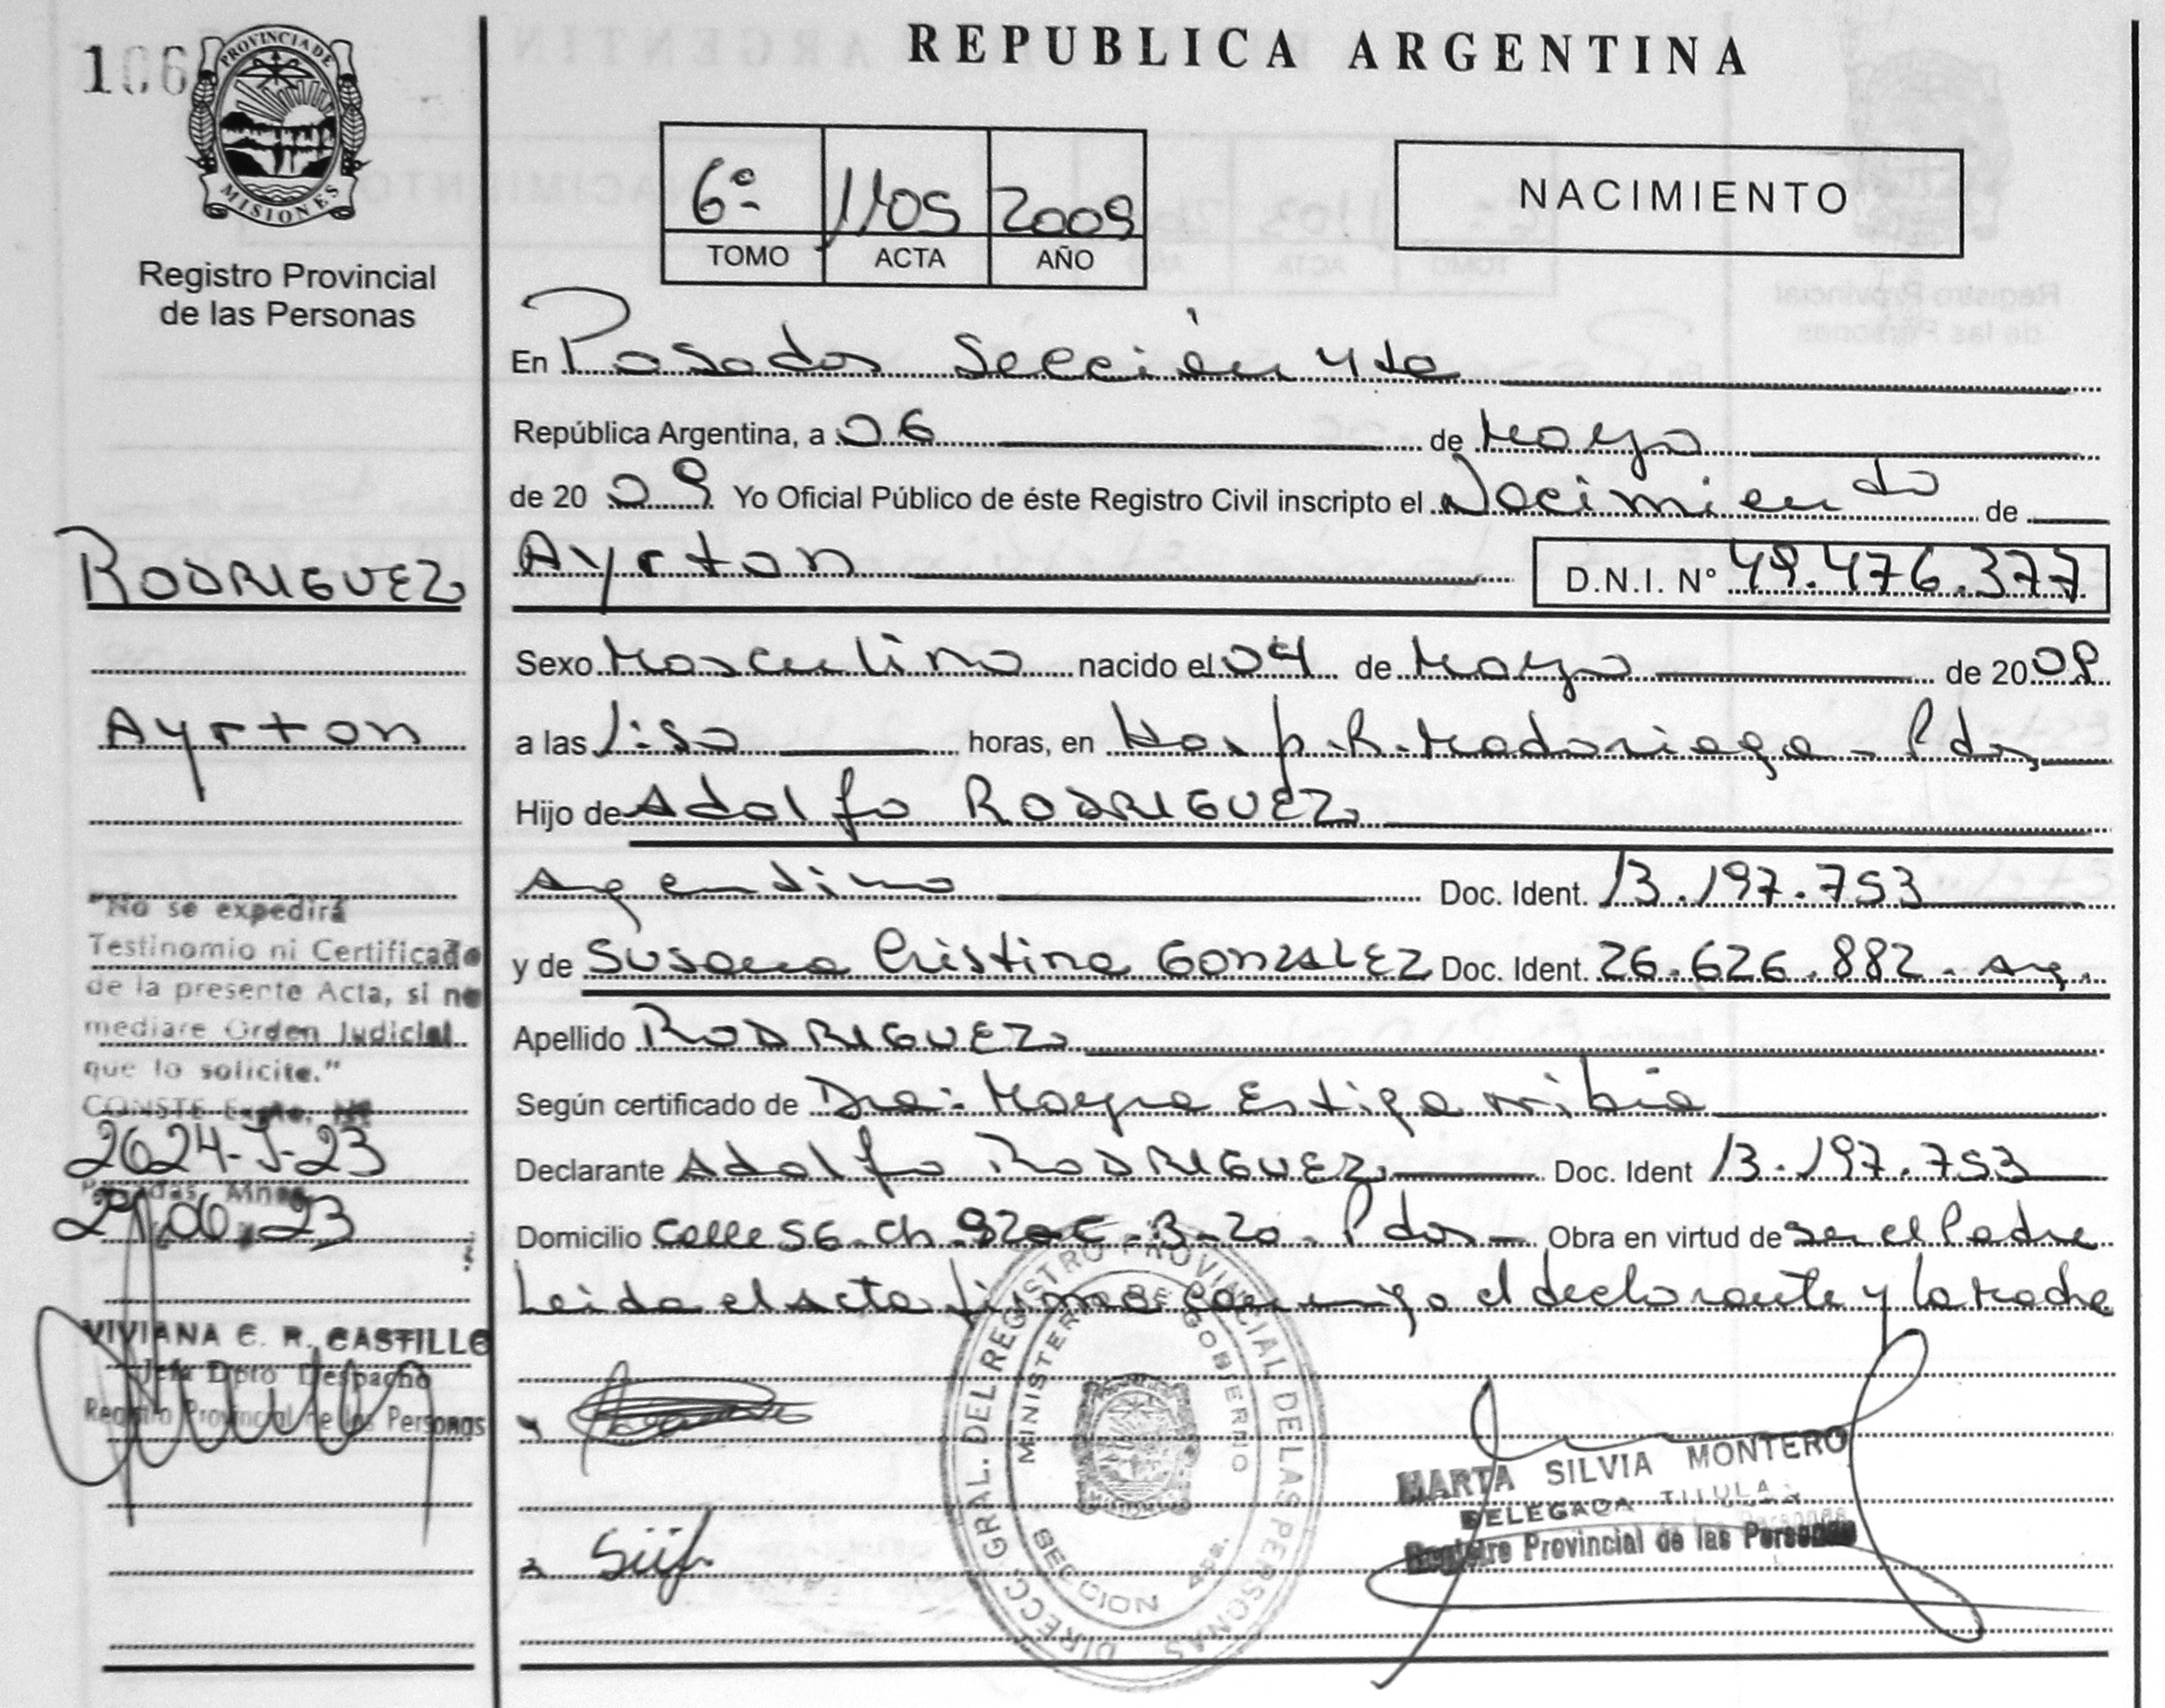 REPUBLICA ARGENTINA
106
PROVINCIA DE
MISIONES
Registro Provincial
de las Personas
6º 1105 2009
TOMO ACTA AÑO
NACIMIENTO
En Posadas Sección 4ta
República Argentina, a 06 de Mayo
de 2009 Yo Oficial Público de éste Registro Civil inscripto el Nacimiento de
Ayrton D.N.I. Nº 49.476.377
Sexo Masculino nacido el 04 de Mayo de 2009
a las 1:50 horas, en Hosp. R. Madariaga - Pdas
Hijo de Adolfo RODRIGUEZ
Argentino Doc. Ident. 13.197.753
y de Susana Cristina GONZALEZ Doc. Ident. 26.626.882 - Arg.
Apellido RODRIGUEZ
Según certificado de Dra: Mayra Estigarribia
Declarante Adolfo RODRIGUEZ Doc. Ident 13.197.753
Domicilio Calle 56 - Ch - 3-20 - Pdas - Obra en virtud de ser el Padre
Leida el acta firma conmigo el declarante y la madre
RODRIGUEZ
Ayrton
"No se expedirá
Testinomio ni Certificado
de la presente Acta, si no
mediare Orden Judicial
que lo solicite."
CONSTE Expte. Nº
2624-J-23
Posadas, Mnes,
29.06.23
VIVIANA C. R. CASTILLO
Jefa Dpto Despacho
Registro Provincial de las Personas
DIRECC. GRAL. DEL REGISTRO PROVINCIAL DE LAS PERSONAS
MINISTERIO DE GOBIERNO
SECCION 4ta.
MARTA SILVIA MONTERO
DELEGADA TITULAR
Registro Provincial de las Personas